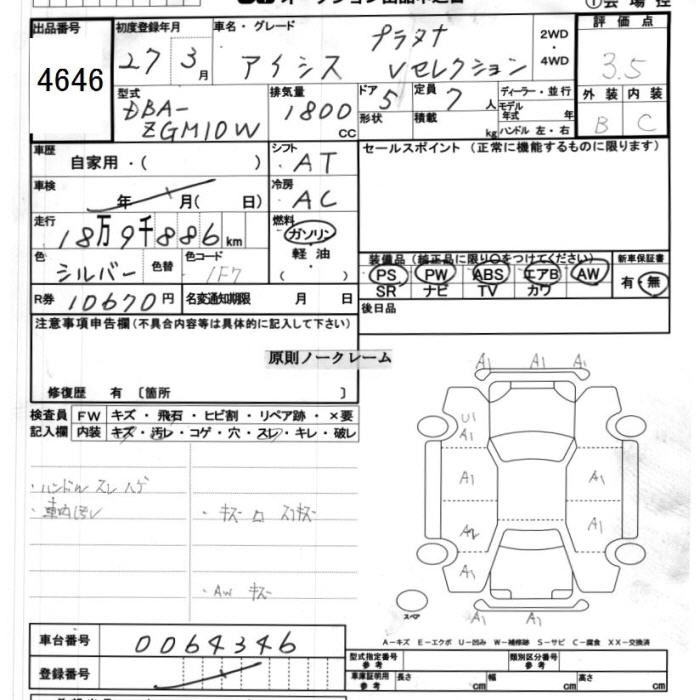 出品番号
4646
初度登録年月
27 3月
車名・グレード
プラタナ
アイシス Vセレクション
2WD
・
4WD
評価点
3.5
外装 内装
B C
型式
DBA-
ZGM10W
排気量
1800
CC
ドア 5
形状
定員 7人
積載 kg
ディーラー・並行
モデル年式 年
ハンドル 左・右
車歴
自家用・( )
シフト
AT
セールスポイント（正常に機能するものに限ります）
車検
年 月( 日)
冷房
AC
走行
18万9千886km
燃料
ガソリン
軽油
( )
色
シルバー
色替
色コード
1F7
装備品（純正品に限り〇をつけてください）
PS PW ABS エアB AW
SR ナビ TV カワ
新車保証書
有・無
R券 10670円
名変通知期限 月 日
後日品
注意事項申告欄（不具合内容等は具体的に記入して下さい）
原則ノークレーム
修復歴 有 〔箇所 〕
検査員記入欄
FW キズ・飛石・ヒビ割・リペア跡・×要
内装 キズ・汚レ・コゲ・穴・スレ・キレ・破レ
・ハンドル スレ ハゲ
・車内汚レ
・キズ ロ スリキズ
・AW キズ
A1 A1 A1
U1
A1
A1 A1
A2 A1
A1
A1 A1
スペア
A－キズ E－エクボ U－凹み W－補修跡 S－サビ C－腐食 XX－交換済
車台番号
0064346
登録番号
型式指定番号
参考
類別区分番号
参考
車庫証明用
参考
長さ cm 幅 cm 高さ cm